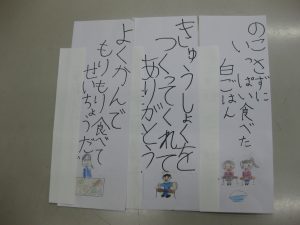 のこさずに
いっぱい食べた
白ごはん
きゅうしょくを
つくってくれて
ありがとう
よくかんで
もりもり食べて
せいちょうだ